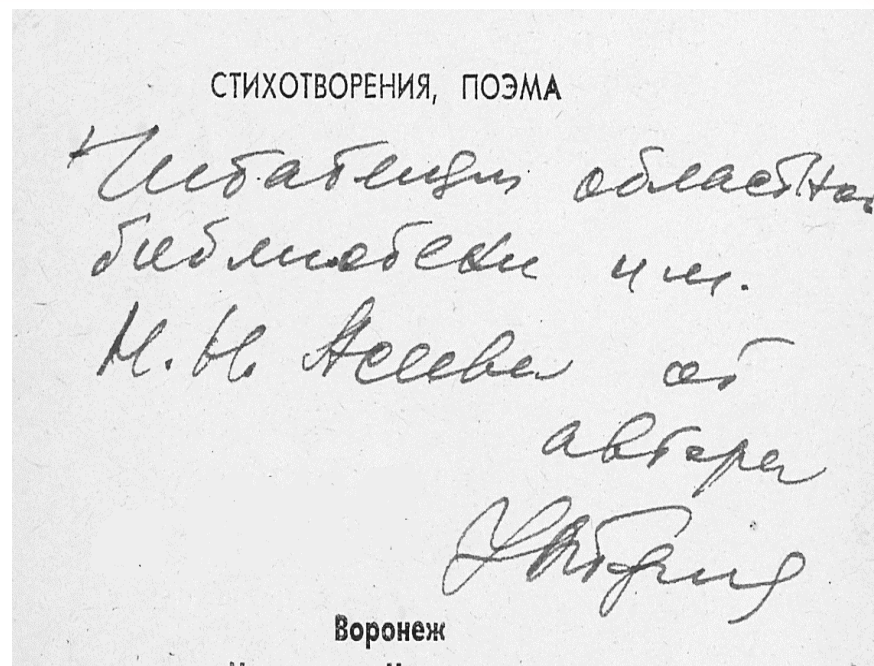 СТИХОТВОРЕНИЯ, ПОЭМА
Читателям областной
библиотеки им.
Н. Н. Асеева от
автора
Воронеж